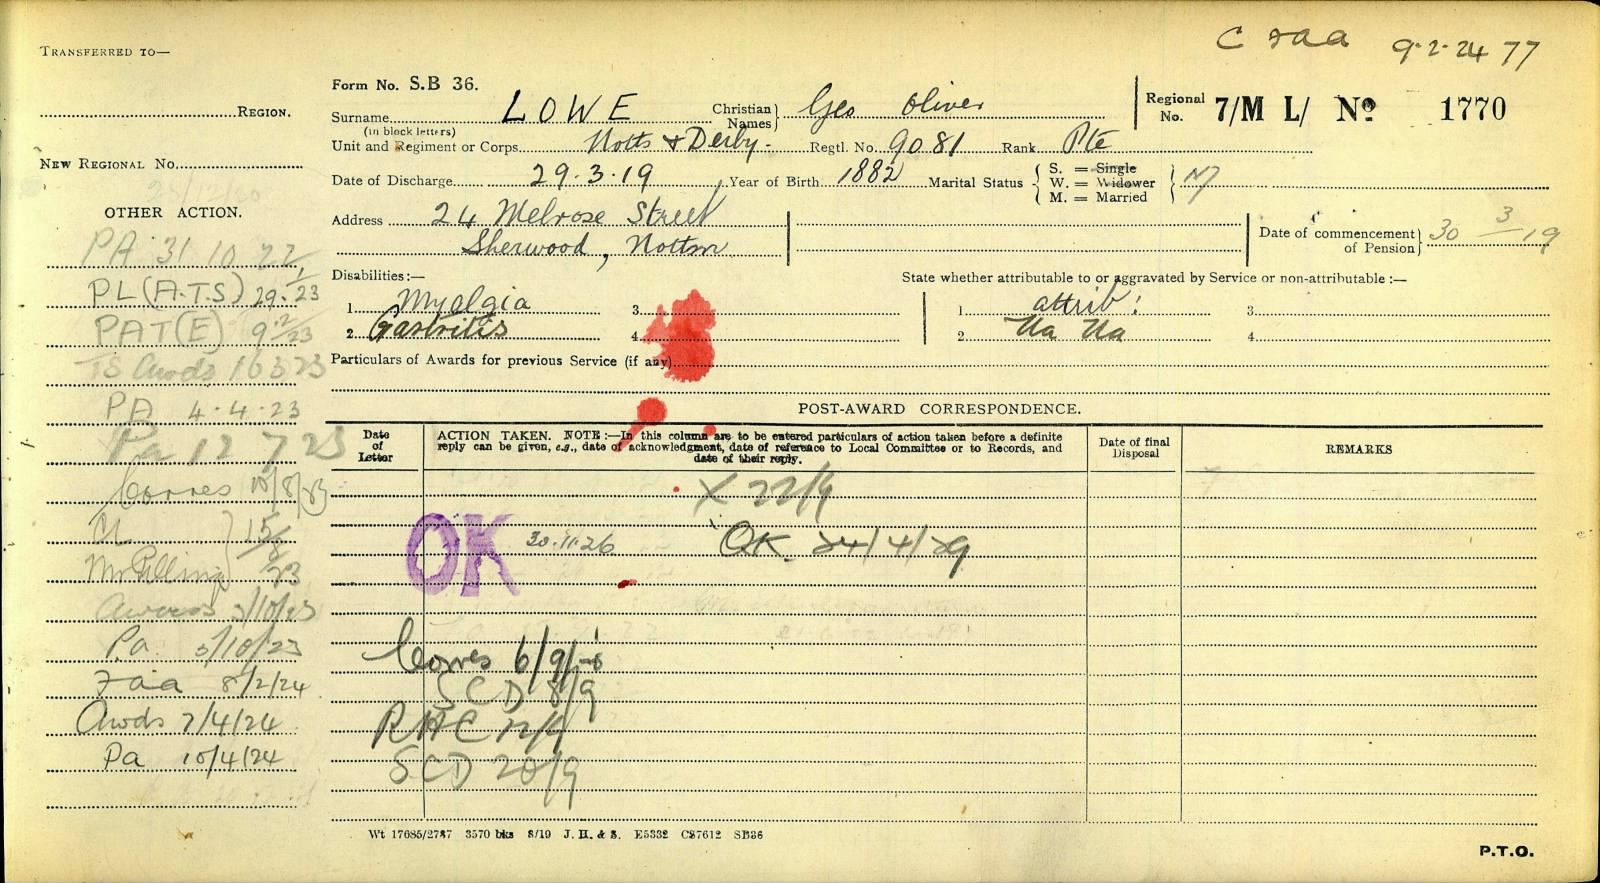 C 7aa 9.2.24 77
TRANSFERRED TO—
REGION.
NEW REGIONAL NO.
23/12/20
OTHER ACTION.
PA 31 10 22
PL (A.T.S) 29.1/23
PAT (E) 9.2/23
TS Awds 16 3 23
PA 4.4.23
Pa 12 7 23
Corres 10/8/23
15/8/23
Awards 3/10/23
Pa. 5/10/23
7aa 8/2/24
Awds 7/4/24
Pa 10/4/24
Form No. S.B 36.
Surname LOWE Christian Names} Geo Oliver Regional No. 7/M L/ No 1770
(in block letters)
Unit and Regiment or Corps Notts & Derby. Regtl. No. 9081 Rank Pte
Date of Discharge 29.3.19 Year of Birth 1882 Marital Status { S. = Single W. = Widower M. = Married } M
Address 24 Melrose Street
Sherwood, Nottm
Date of commencement of Pension} 30 3/19
Disabilities:— State whether attributable to or aggravated by Service or non-attributable:—
1. Myalgia 3. 1. attrib: 3.
2. Gastritis 4. 2. Na Na 4.
Particulars of Awards for previous Service (if any)
POST-AWARD CORRESPONDENCE.
Date of Letter
ACTION TAKEN. NOTE:—In this column are to be entered particulars of action taken before a definite
reply can be given, e.g., date of acknowledgment, date of reference to Local Committee or to Records, and
date of their reply.
Date of final Disposal
REMARKS
X 22/9
OK 30.11.26 OK 24/4/29
Corres 6/9/
SCD 8/9
RHC 12/9
SCD 20/9
Wt 17685/2787 3570 bks 8/19 J. H. & S. E5332 C87612 SB36
P.T.O.